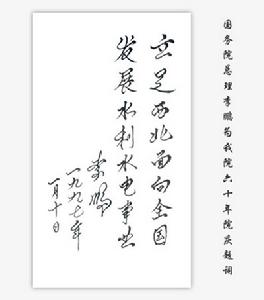 国务院总理李鹏为我院六十年院庆题词
立足西北面向全国
发展水利水电事业
李鹏
一九九七年
一月十日